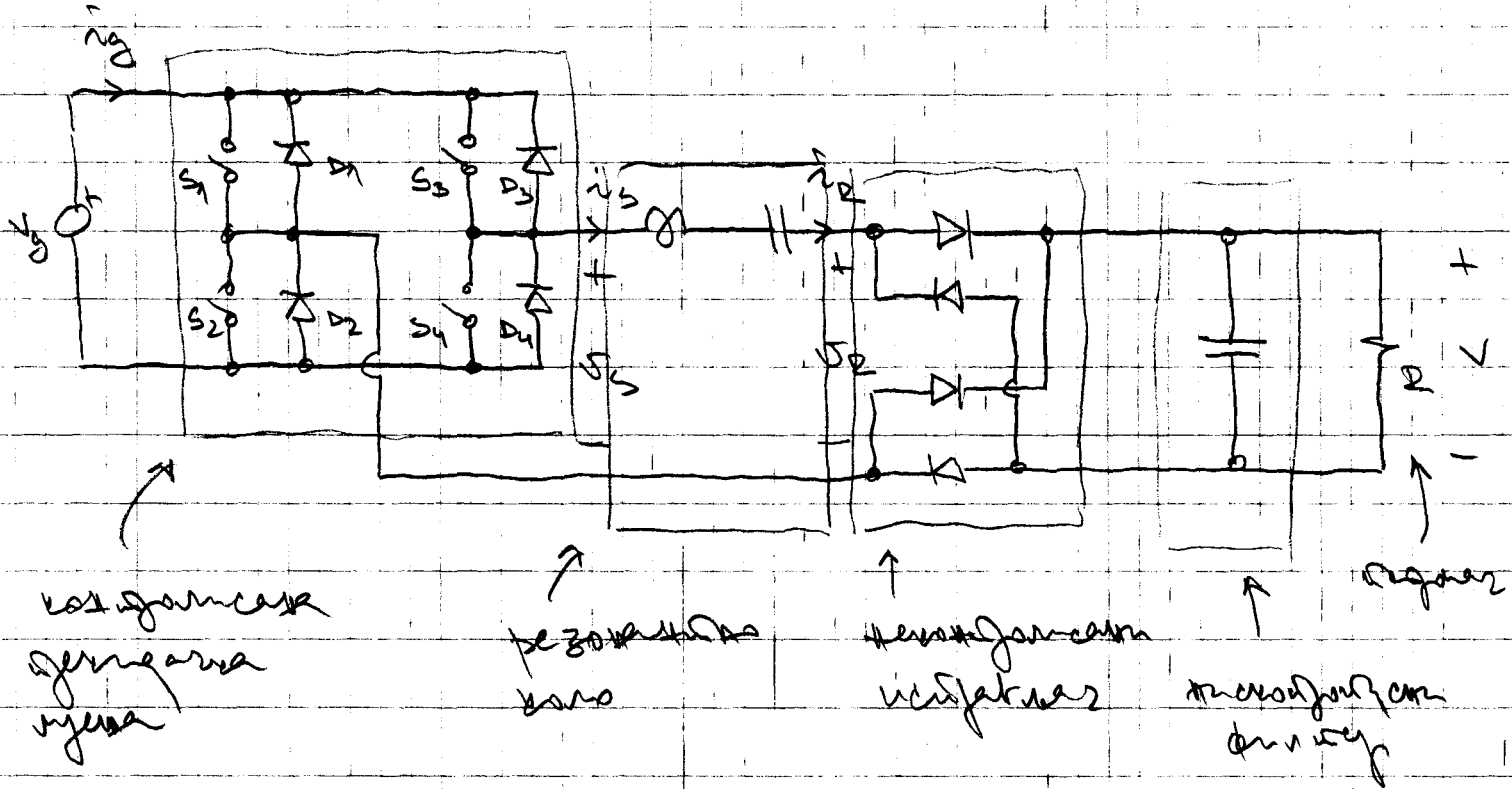 i_g
S1 D1 S3 D3
i_s
i_R
V_g +
+ + +
S2 D2 S4 D4
v_s
v_R
R V
− −
контролисана
прекидачка
мрежа
резонантно
коло
неконтролисани
исправљач
нископропусни
филтер